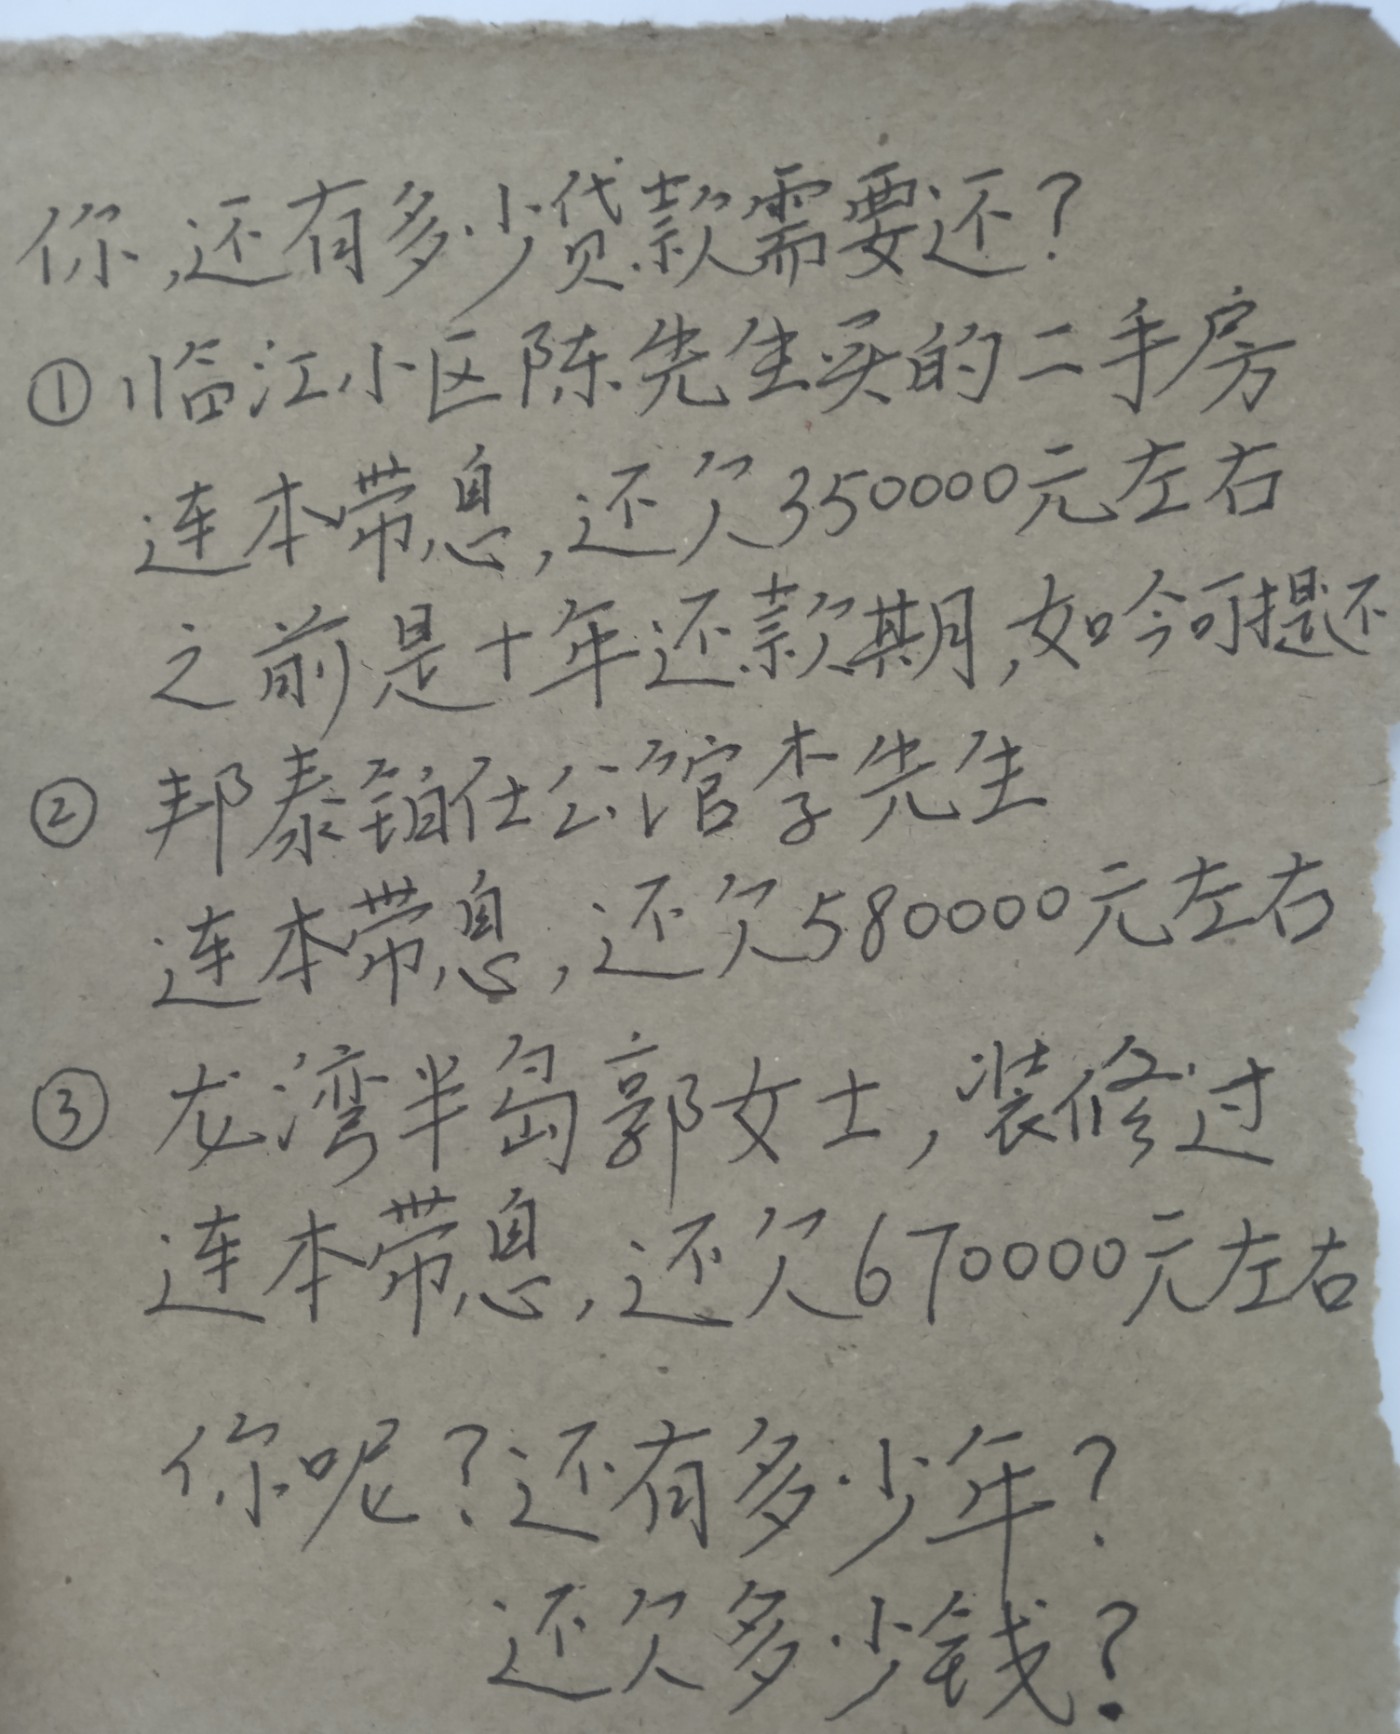 你,还有多少贷款需要还?
① 临江小区陈先生买的二手房
连本带息,还欠350000元左右
之前是十年还款期,如今可提还
② 邦泰铂仕公馆李先生
连本带息,还欠580000元左右
③ 龙湾半岛郭女士,装修过
连本带息,还欠670000元左右
你呢?还有多少年?
还欠多少钱?